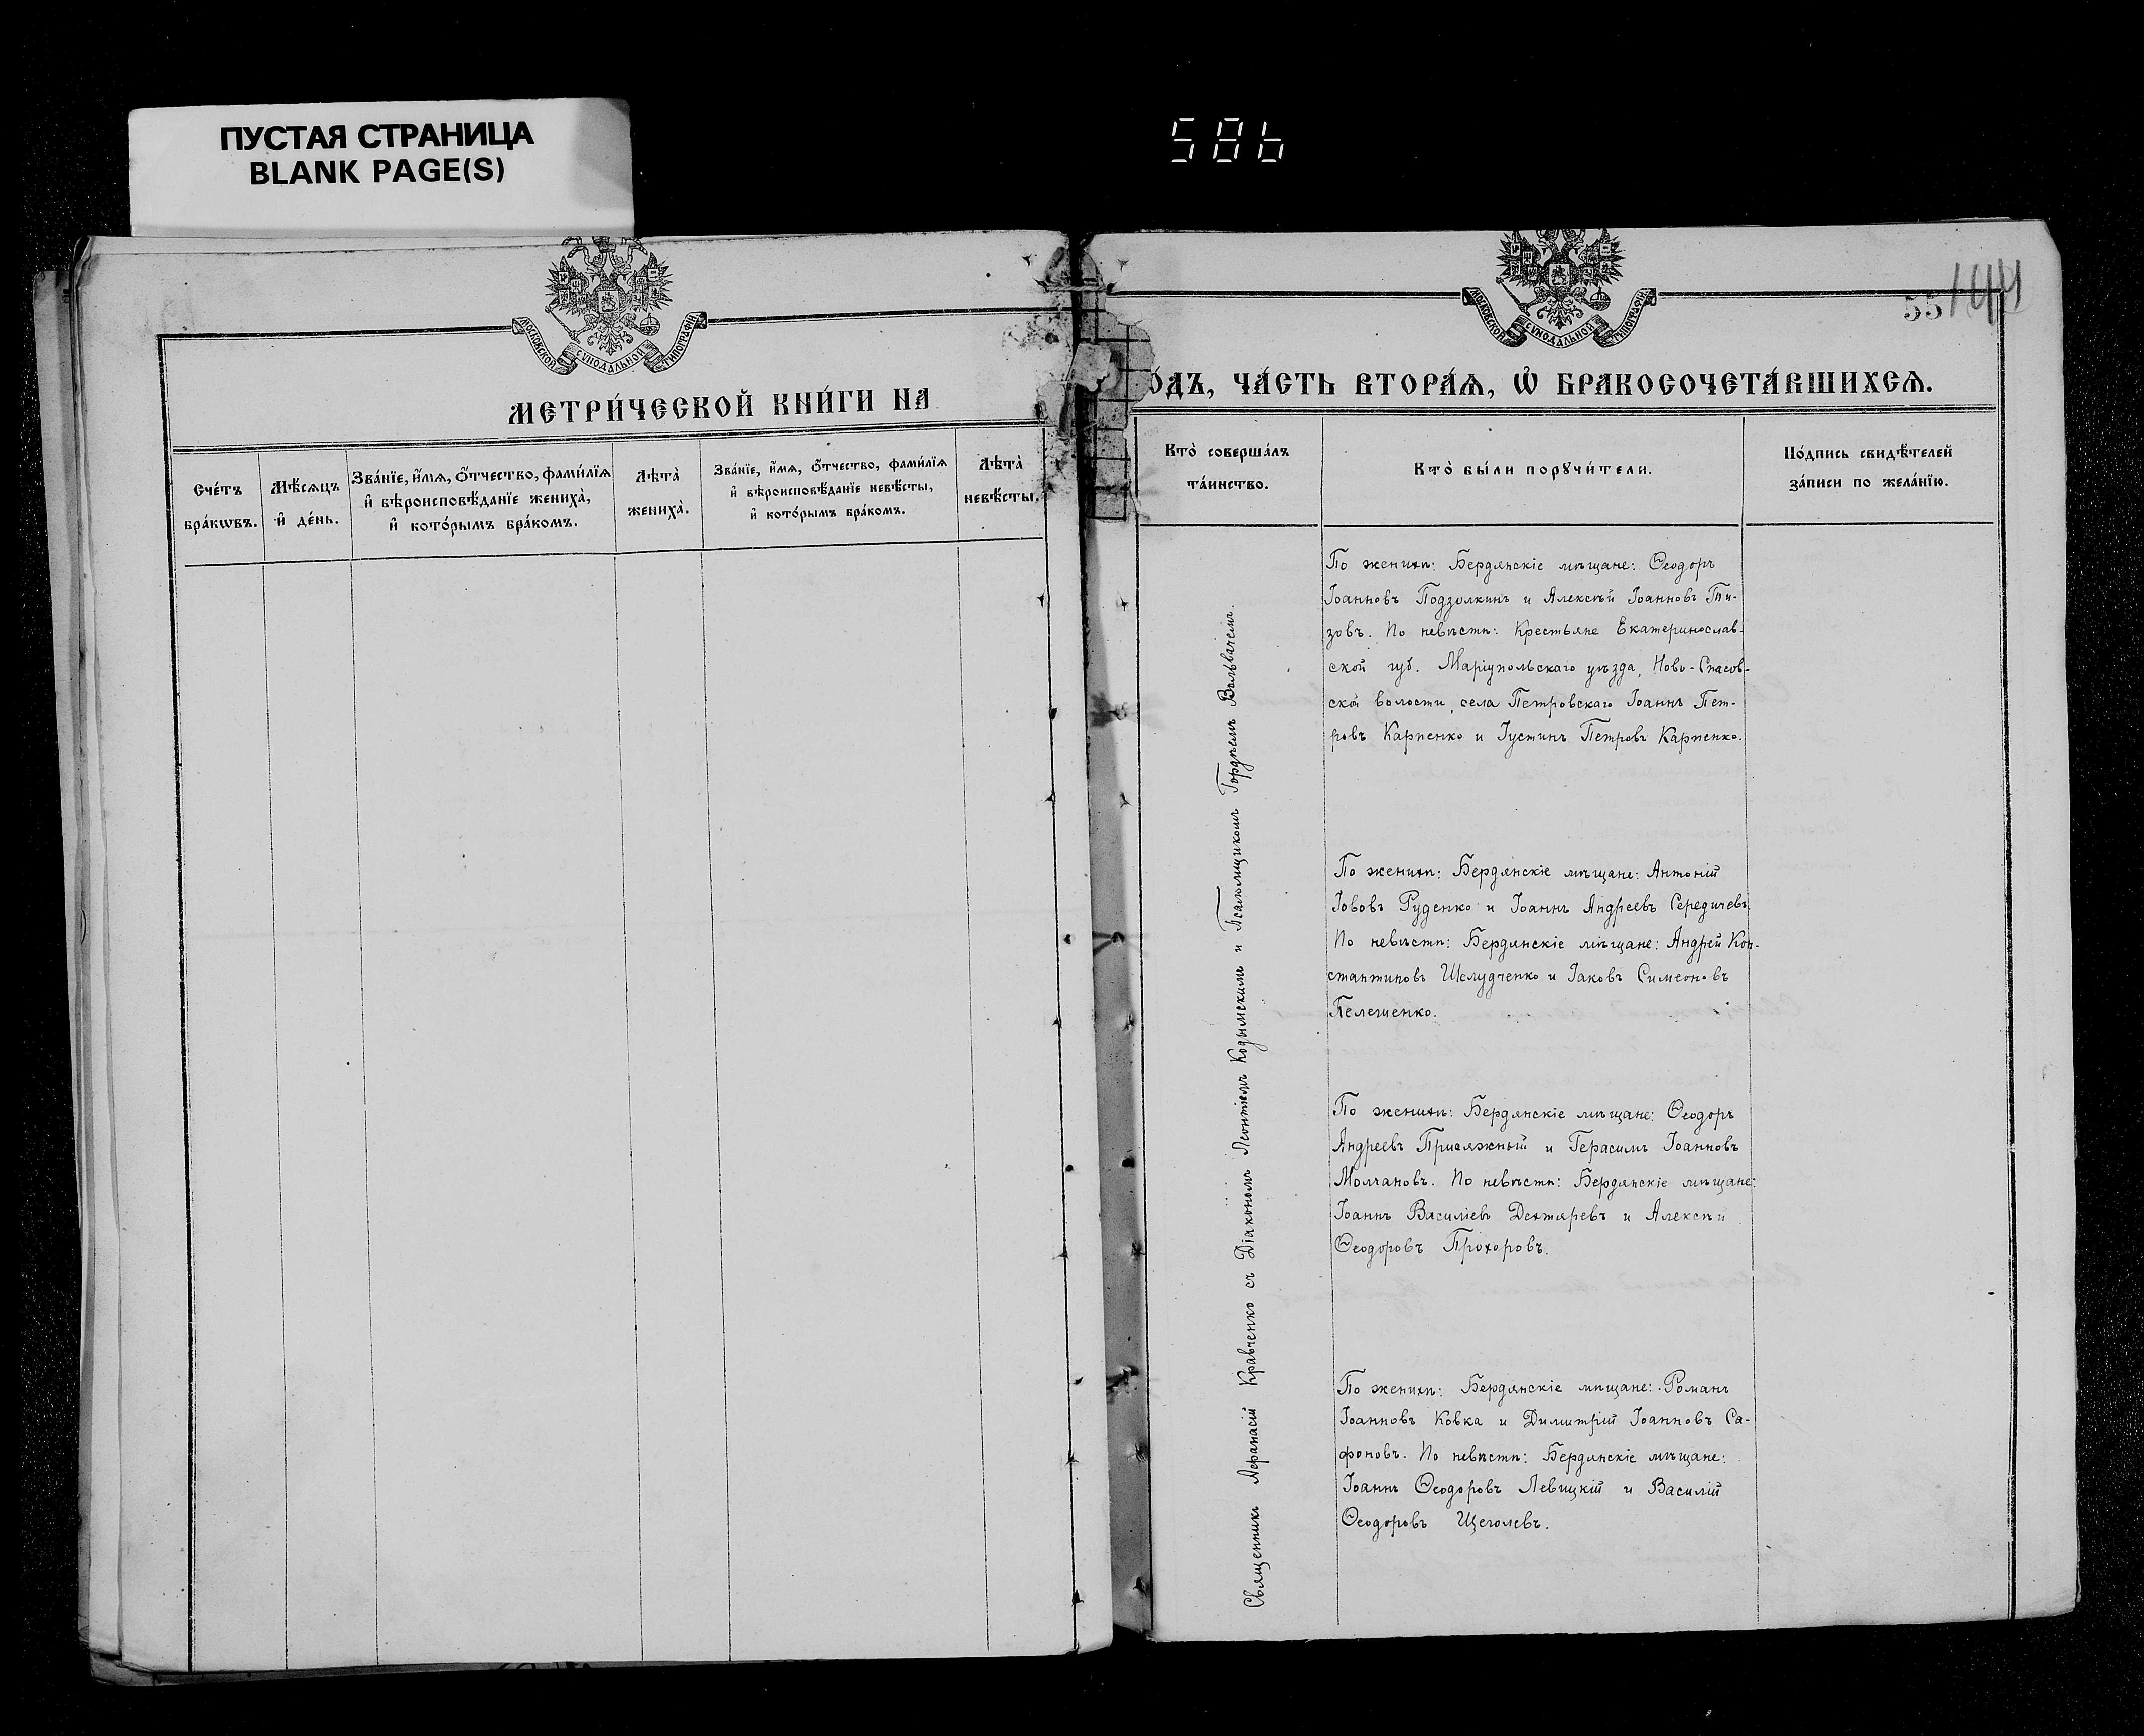 ПУСТАЯ СТРАНИЦА
BLANK PAGE(S)
586
МОСКОВСКОЙ СУНОДАЛЬНОЙ ТИПОГРАФІИ
МЕТРИ́ЧЕСКОЙ КНИ́ГИ НА
Сче́тъ бра́кѡвъ.
Мѣ́сѧцъ и҆ де́нь.
Зва́нїе, и҆́мѧ, ѻ҆́тчество, фами́лїѧ и҆ вѣроисповѣ́данїе жениха̀, и҆ кото́рымъ бра́комъ.
Лѣ́та̀ жениха̀.
Зва́нїе, и҆́мѧ, ѻ҆́тчество, фами́лїѧ и҆ вѣроисповѣ́данїе невѣ́сты, и҆ кото́рымъ бра́комъ.
Лѣ́та̀ невѣ́сты.
МОСКОВСКОЙ СУНОДАЛЬНОЙ ТИПОГРАФІИ
55
144
О́ДЪ, ЧА́СТЬ ВТОРА́Ѧ, Ѡ҆ БРАКОСОЧЕТА́ВШИХСѦ.
Кто̀ соверша́лъ та́инство.
Кто̀ бы́ли порꙋчи́тели.
По́дпись свидѣ́телей за́писи по жела́нїю.
Священникъ Аѳанасій Кравченко съ Діакономъ Леонтіемъ Кодымскимъ и Псаломщикомъ Гордіемъ Вальвачемъ.
По женихѣ: Бердянскіе мѣщане: Ѳеодоръ
Іоанновъ Подзолкинъ и Алексѣй Іоанновъ Пи-
зовъ. По невѣстѣ: Крестьяне Екатеринослав-
ской губ. Маріупольскаго уѣзда, Ново-Спасов-
ской волости, села Петровскаго Іоаннъ Пет-
ровъ Карпенко и Іустинъ Петровъ Карпенко.
По женихѣ: Бердянскіе мѣщане: Антоній
Іововъ Руденко и Іоаннъ Андреевъ Середичевъ.
По невѣстѣ: Бердянскіе мѣщане: Андрей Кон-
стантиновъ Шелудченко и Іаковъ Симеоновъ
Пелешенко.
По женихѣ: Бердянскіе мѣщане: Ѳеодоръ
Андреевъ Присяжный и Герасимъ Іоанновъ
Молчановъ. По невѣстѣ: Бердянскіе мѣщане:
Іоаннъ Василіевъ Дехтяревъ и Алексѣй
Ѳеодоровъ Прохоровъ.
По женихѣ: Бердянскіе мѣщане: Романъ
Іоанновъ Ковка и Димитрій Іоанновъ Са-
фоновъ. По невѣстѣ: Бердянскіе мѣщане:
Іоаннъ Ѳеодоровъ Левицкій и Василій
Ѳеодоровъ Щеголевъ.